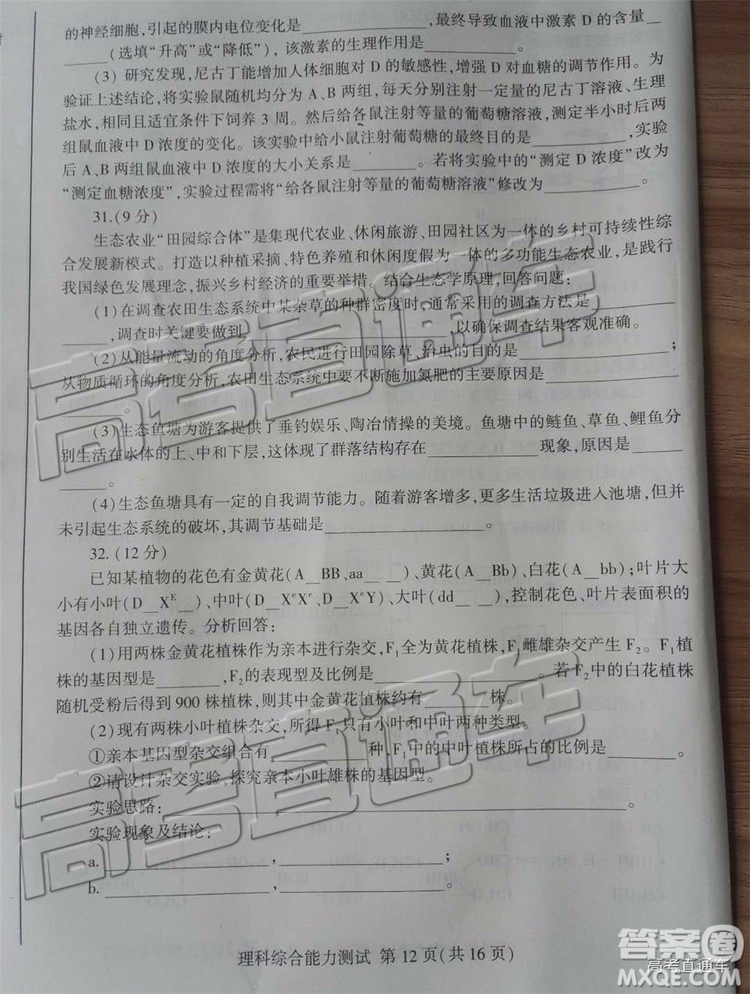 的神经细胞,引起的膜内电位变化是__________,最终导致血液中激素 D 的含量___
______(选填“升高”或“降低”),该激素的生理作用是__________。
(3) 研究发现,尼古丁能增加人体细胞对 D 的敏感性,增强 D 对血糖的调节作用。为
验证上述结论,将实验鼠随机均分为 A、B 两组,每天分别注射一定量的尼古丁溶液、生理
盐水,相同且适宜条件下饲养 3 周。然后给各鼠注射等量的葡萄糖溶液,测定半小时内两
组鼠血液中 D 浓度的变化。该实验中给小鼠注射葡萄糖的最终目的是________,实验
后 A、B 两组鼠血液中 D 浓度的大小关系是________。若将实验中的“测定 D 浓度”改为
“测定血糖浓度”,实验过程需将“给各鼠注射等量的葡萄糖溶液”修改为__________。
31.(9 分)
生态农业“田园综合体”是集现代农业、休闲旅游、田园社区为一体的乡村可持续性综
合发展新模式。打造以种植采摘、特色养殖和休闲度假为一体的多功能生态农业,是践行
我国绿色发展理念,振兴乡村经济的重要举措。结合生态学原理,回答问题:
(1)在调查农田生态系统中某杂草的种群密度时,通常采用的调查方法是______
______,调查时关键要做到__________,以确保调查结果客观准确。
(2)从能量流动的角度分析,农民进行田园除草、治虫的目的是__________;
从物质循环的角度分析,农田生态系统中要不断施加氮肥的主要原因是__________
______。
(3)生态鱼塘为游客提供了垂钓娱乐、陶冶情操的美境。鱼塘中的鲢鱼、草鱼、鲤鱼分
别生活在水体的上、中和下层,这体现了群落结构存在__________现象,原因是___
______。
(4)生态鱼塘具有一定的自我调节能力。随着游客增多,更多生活垃圾进入池塘,但并
未引起生态系统的破坏,其调节基础是__________。
32.(12 分)
已知某植物的花色有金黄花(A__BB、aa__ __)、黄花(A__Bb)、白花(A__bb);叶片大
小有小叶(D__X^E__)、中叶(D__X^eX^e、D__X^eY)、大叶(dd__ __),控制花色、叶片面积的
基因各自独立遗传。分析回答:
(1)用两株金黄花植株作为亲本进行杂交,F₁全为黄花植株,F₁雌雄杂交产生 F₂。F₁植
株的基因型是________,F₂的表现型及比例是__________。若 F₂中的白花植株
随机受粉后得到 900 株植株,则其中金黄花植株约有______株。
(2)现有两株小叶植株杂交,所得 F₁只有小叶和中叶两种类型。
①亲本基因型杂交组合有__________种,F₁中的中叶植株所占的比例是________。
②请设计杂交实验,探究亲本小叶雄株的基因型。
实验思路:__________。
实验现象及结论:
a.__________,__________;
b.__________,__________。
理科综合能力测试 第 12 页(共 16 页)
高考直通车
高考直通车
答案圈
高考直通车
MXQE.COM